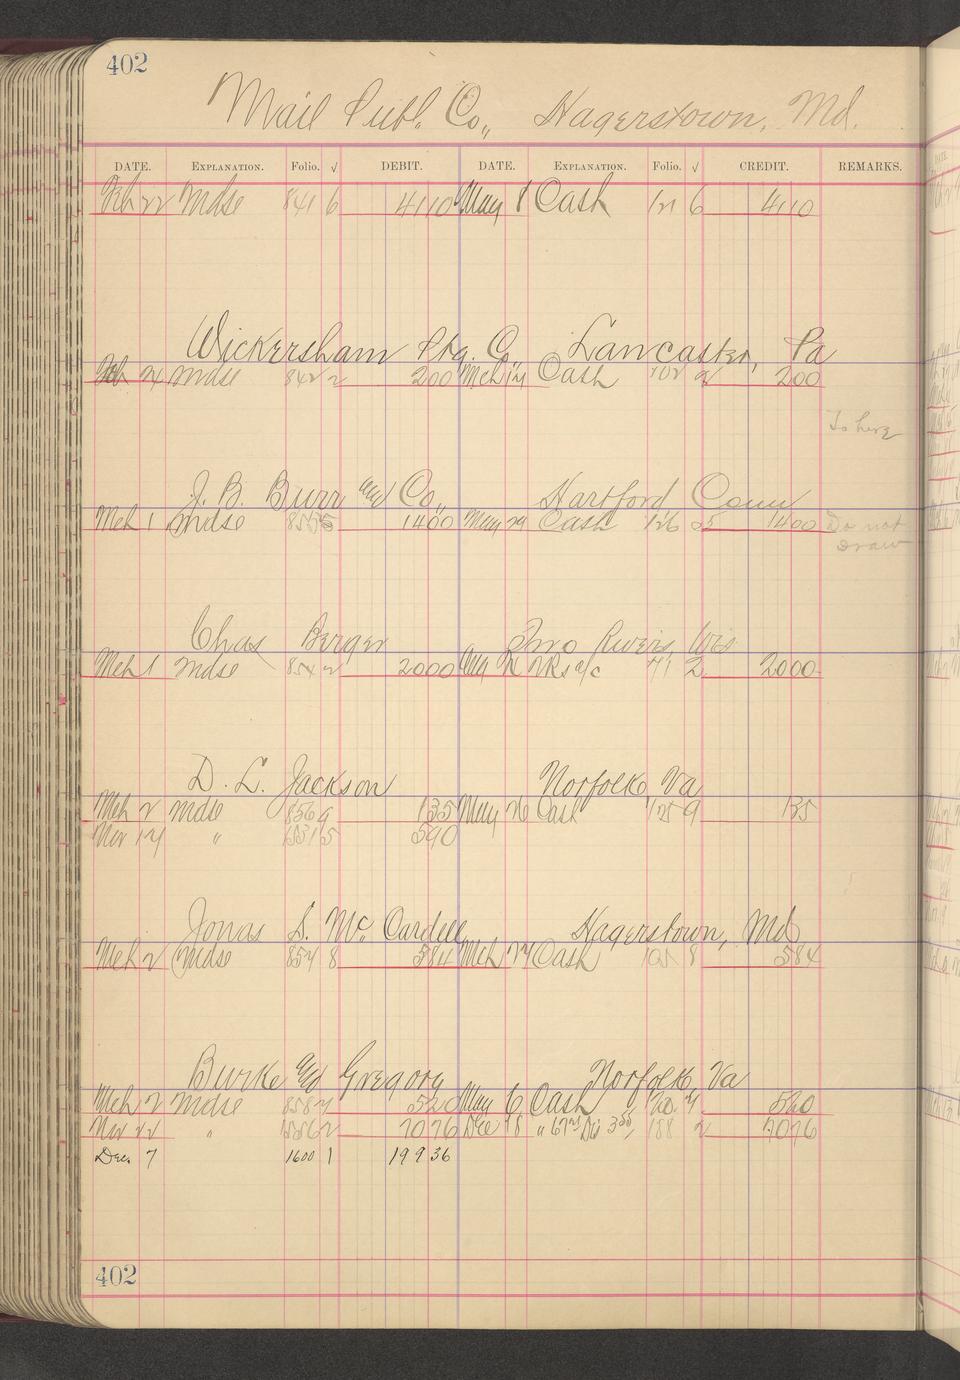 402
Mail Publ. Co., Hagerstown, Md.
DATE. EXPLANATION. Folio. √ DEBIT. DATE. EXPLANATION. Folio. √ CREDIT. REMARKS.
Feb 22 Mdse 841 6 4110 May 8 Cash 121 6 4110
Wickersham Ptg. Co., Lancaster, Pa
Feb 24 Mdse 842 2 200 Mch 14 Cash 102 200
To here
J. B. Burr and Co., Hartford Conn
Mch 1 Mdse 1400 May 29 Cash 126 25 1400 Do not
Draw
Chas Berger Two Rivers, Wis
Mch 1 Mdse 854 2 2000 Aug 2 2000
D. L. Jackson Norfolk, Va
Mch 2 Mdse 856 9 135 May 26 Cash 125 9 135
Nov 14 " 1531 5 590
Jonas S. McCardell, Hagerstown, Md
Mch 2 Mdse 857 8 584 Mch 27 Cash 8 584
Burke and Gregory Norfolk, Va
Mch 2 Mdse 858 7 520 May 6 Cash 120 7 520
Nov 22 " 1556 2 7076 Dec 18 " 188 2 7076
Dec. 7 1600 1 19936
402